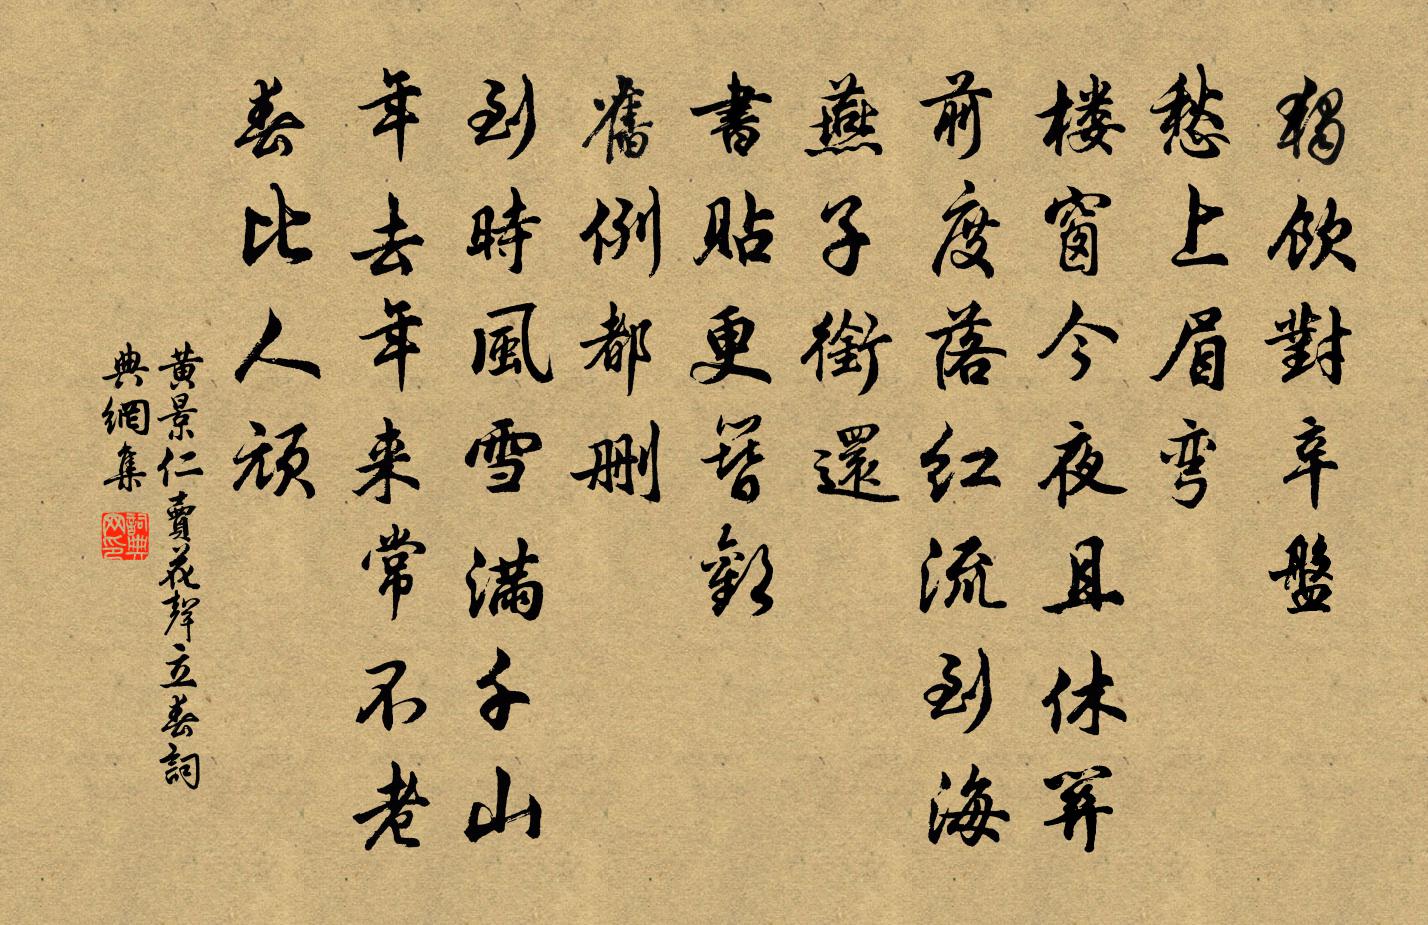 獨飲對辛盤
愁上眉彎
樓窗今夜且休關
前度落红流到海
燕子銜還
書貼更簪歡
舊例都刪
到時風雪滿千山
年去年来常不老
春比人頑
黄景仁賣花聲立春詞
典網集
詞典网印